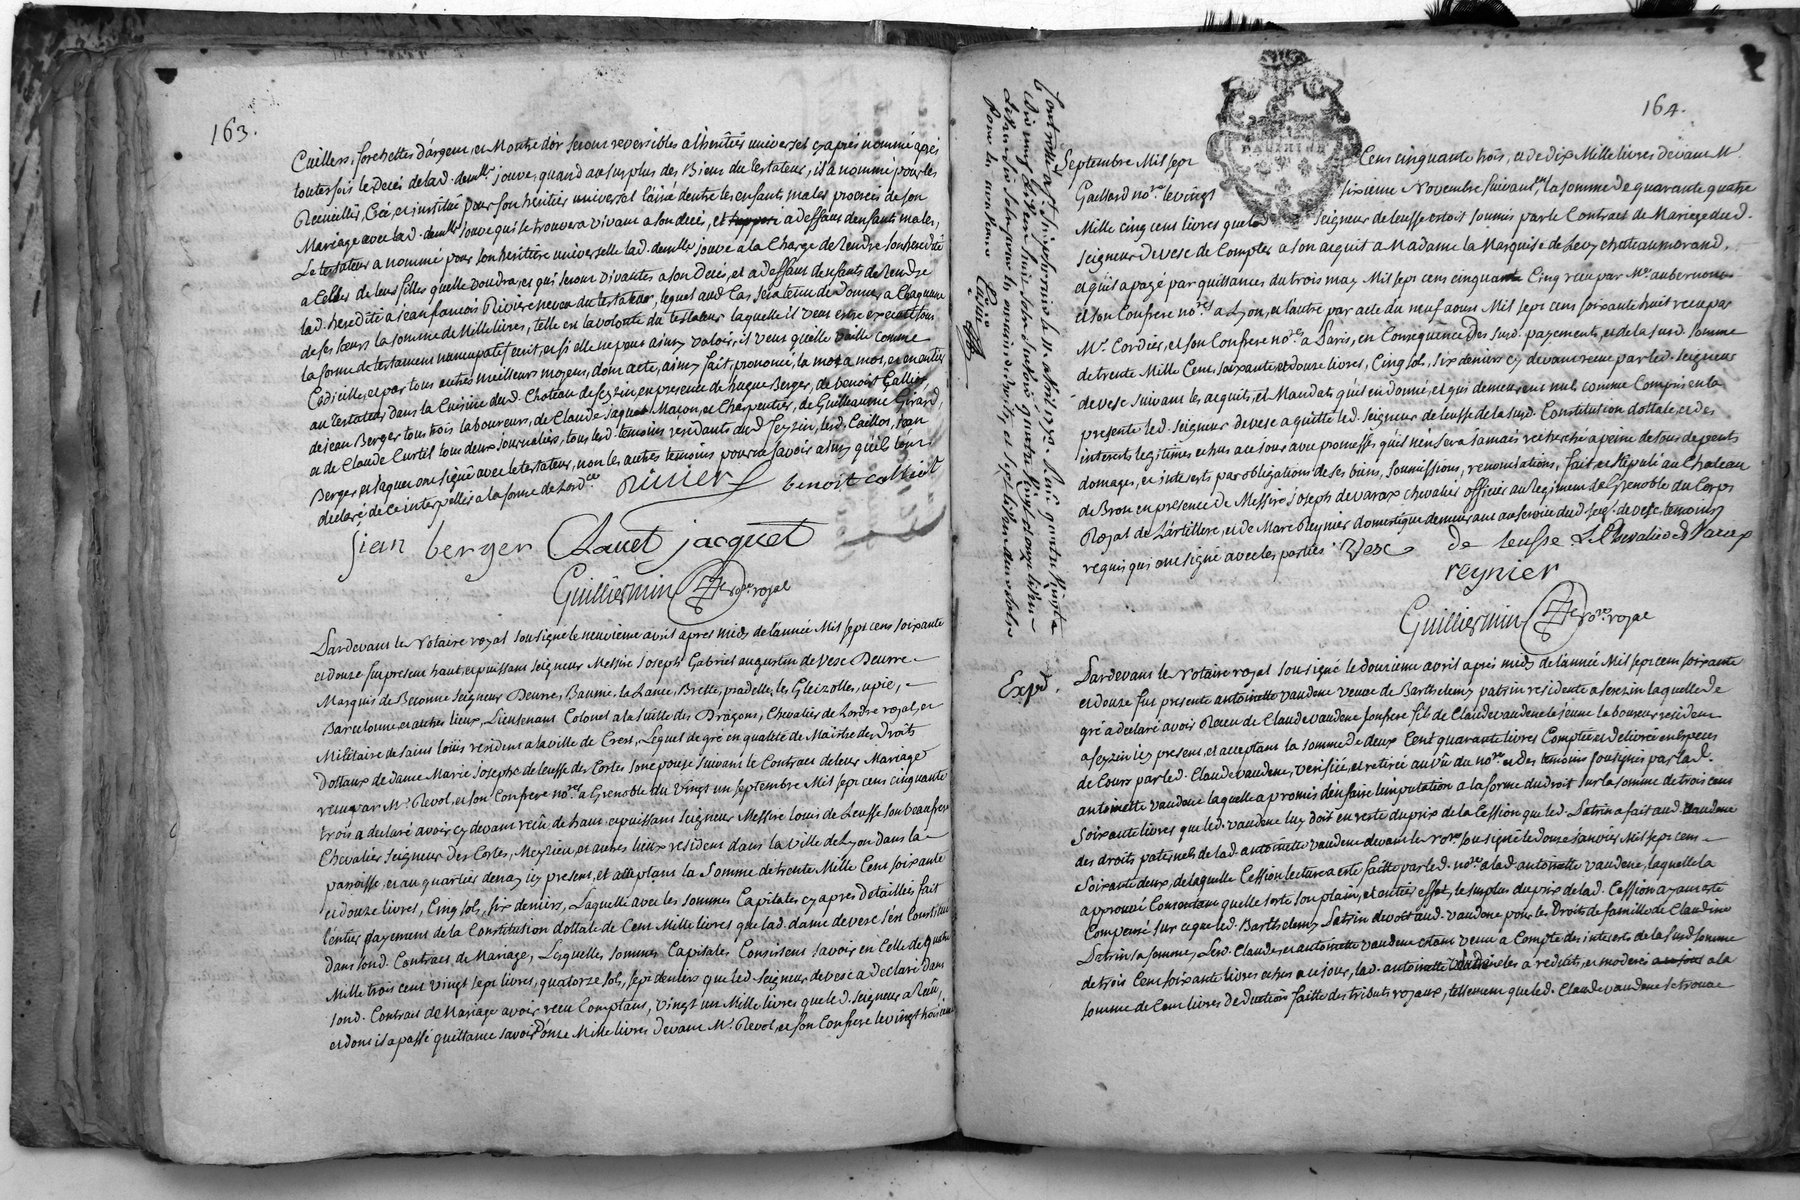 163.
Cuillers, forchettes d'argent, et Montre d'or seront reversibles a lheritier universel cy aprés nommé apres
toutes fois le Decés de lad. demlle jouve, quand au surplus des Biens du testateur, il a nommé pour les
Recueillir, Créé, et institué pour son heritier universel l'ainé dentre les enfants males procréés de son
Mariage avec lad. demlle jouve qui se trouvera vivant a son decé, et a deffaut denfants males,
Le testateur a nommé pour son heritiere universelle lad. demlle jouve a la Charge de Rendre son heredité
a Celles de leur filles quelle voudra, et qui seront vivantes a son Decés, et a deffaut denfants de Rendre
lad. heredité a jean francois Rivier neveu du testateur, lequel aud. Cas sera tenu de Donner a Chaqune
de ses sœurs la somme de Mille livres, telle en la volonté du testateur laquelle il veut estre executé sous
la forme de testament nuncupatif ecrit, et si elle ne peut ainsy valoir, il veut quelle vaille comme
Codicille, et par tous autres meilleurs moyens, dont acte, ainsy fait, prononcé, la mot a mot, et en entier
au testateur, dans la Cuisine dud. Chateau de feyzin, en presence de hugue Berger, de benoist Gallier,
de jean Berger tous trois laboureurs, de Claude jaquet Maçon, et Charpentier, de Guilhaume Girard,
et de Claude Curtil tous deux journaliers, tous lesd. temoins residants aud. feyzin, lesd. Caillot, jean
Berger, et jaquet ont signé avec le testateur, non les autres temoins pour ne savoir ainsy quils lont
declaré de ce interpellés a la forme de Lordce
Rivier benoit calliot
jean berger Claude jacquet
Guilliermin no.re royal
Pardevant le Notaire royal sousigné le neuvieme avril apres midy de lannée Mil sept cens soixante
et douze fut present haut, et puissant seigneur Messire joseph Gabriel augustin de Vesc Beurre
Marquis de Beconne seigneur Deurre, Baume, la Lance, Brette, pradelle, les Gleizolles, upie,
Barcelonne, et autres lieux, Lieutenant Colonel a la suitte des Dragons, Chevalier de Lordre royal, et
Militaire de saint louis resident a la ville de Crest, Lequel de gré en qualité de Maistre des Droits
Dottaux de dame Marie josephe de leusse des Cortes son epouse suivant le Contract de leur Mariage
reçu par Mr. Revol, et son Confrere no.res a Grenoble du Vingt un septembre Mil sept cens cinquante
trois a declaré avoir cy devant reçû de haut et puissant seigneur Messire louis de Leusse son beaufrere
Chevalier seigneur des Cortes, Meyzieu, et autres lieux resident dans la Ville de Lyon dans la
parroisse, et au quartier denay icy present, et acceptant la Somme de trente Mille Cent soixante
et douze livres, Cinq sols, six deniers, Laquelle avec les sommes Capitales cy apres detaillées fait
lentier payement de la Constitution dottale de Cent Mille livres que lad. dame de vesc sen Constituat
dans sond. Contract de Mariage, Lesquelles sommes Capitales Consistent savoir en Celle de quatre
Mille trois cent vingt sept livres, quatorze sols, sept deniers que led. seigneur de vesc a declaré dans
sond. Contract de Mariage avoir reçu Comptant, Vingt un Mille livres que led. seigneur a Reçû,
et dont il a passé quittance savoir D'onze Mille livres devant Mr. Revol, et son Confrere le vingt trois
164.
Septembre Mil sept Cens cinquante trois, et de dix Mille livres devant Mr.
Gaillard no.re le vingt sixieme Novembre suivant, la somme de quarante quatre
Mille cinq cent livres que led. seigneur de leusse estoit soumis par le Contract de Mariage dud.
seigneur de vesc de Compter a son acquit a Madame la Marquise de Levy chateaumorand,
et qu'il a payé par quittances du trois may Mil sept cens cinquante Cinq reçu par Mr. aubernon
et son Confrere no.res a Lyon, et lautre par acte du neuf aoust Mil sept cens soixante huit reçu par
Mr. Cordier, et son Confrere no.res a Paris, en Consequence Des susd. payements, et de la susd. somme
de trente Mille Cent, soixante, et douze livres, Cinq sols, six deniers cy devant reçue par led. seigneur
de vesc suivant les acquits, et Mandats qu'il en donné, et qui demeurent nuls comme Compris en la
presente led. seigneur de vesc a quitté led. seigneur de leusse de la susd. Constitution dottale, et des
interets legitimes echus a ce jour avec promesses qu'il n'en sera jamais recherché a peine de tous depents
domages, et interets par obligations de ses biens, soumissions, renonciations, fait et stipulé au Chateau
de Bron en presence de Messire joseph de varax chevalier officier au Regiment de Grenoble du Corps
Royal de Lartillerie, et de Marc Reynier domestique demeurant au service dud. seigr. de vesc temoins
requis qui ont signé avec les parties
Vesc de leusse Le Chevalier de Varax
reynier
Guilliermin no.re royal
Expd.
Pardevant le Notaire royal sousigné le douzieme avril apres midy de lannée Mil sept cens soixante
et douze fut presente antoinette vaudene veuve de Barthelemy patrin residente a serezin laquelle de
gré a declaré avoir Reçu de Claude vaudene son frere fils de Claude vaudene le jeune laboureur resident
a feyzin icy present, et acceptant la somme de deux Cent quarante livres Comptée et delivrée en Especes
de Cours par led. Claude vaudene, verifiée, et retirée au vû du no.re et des temoins sousignés par lad.
antoinette vaudene laquelle a promis d'en faire limputation a la forme du droit sur la somme de trois cens
soixante livres que led. vaudene luy doit en reste du prix de la Cession que led. Patrin a fait aud. vaudene
des droits paternels de lad. antoinette vaudene devant le no.re sousigné le douze janvier Mil sept cens
soixante deux, de laquelle Cession lecture a eté faitte par led. no.re a lad. antoinette vaudene, laquelle la
approuvé Consentant quelle sorte son plain, et entier effet, le surplus du prix de lad. Cession ayant eté
Compensé sur ce que led. Barthelemy Patrin devoit aud. vaudene pour les Droits de famille de Claudine
Patrin sa femme, Lesd. Claude, et antoinette vaudene estant venu a Compte des interets de la susd. somme
de trois Cent soixante livres echus a ce jour, lad. antoinette vaudene les a reduits, et moderés a la
somme de Cent livres deduction faitte des tributs royaux, tellement que led. Claude vaudene se trouve